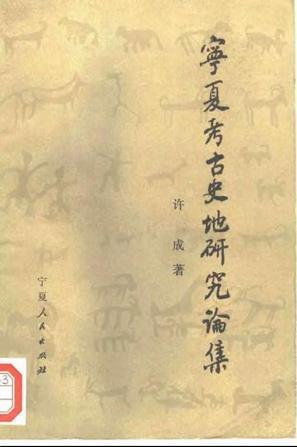 寧夏考古史地研究論集
许成著
宁夏人民出版社
3